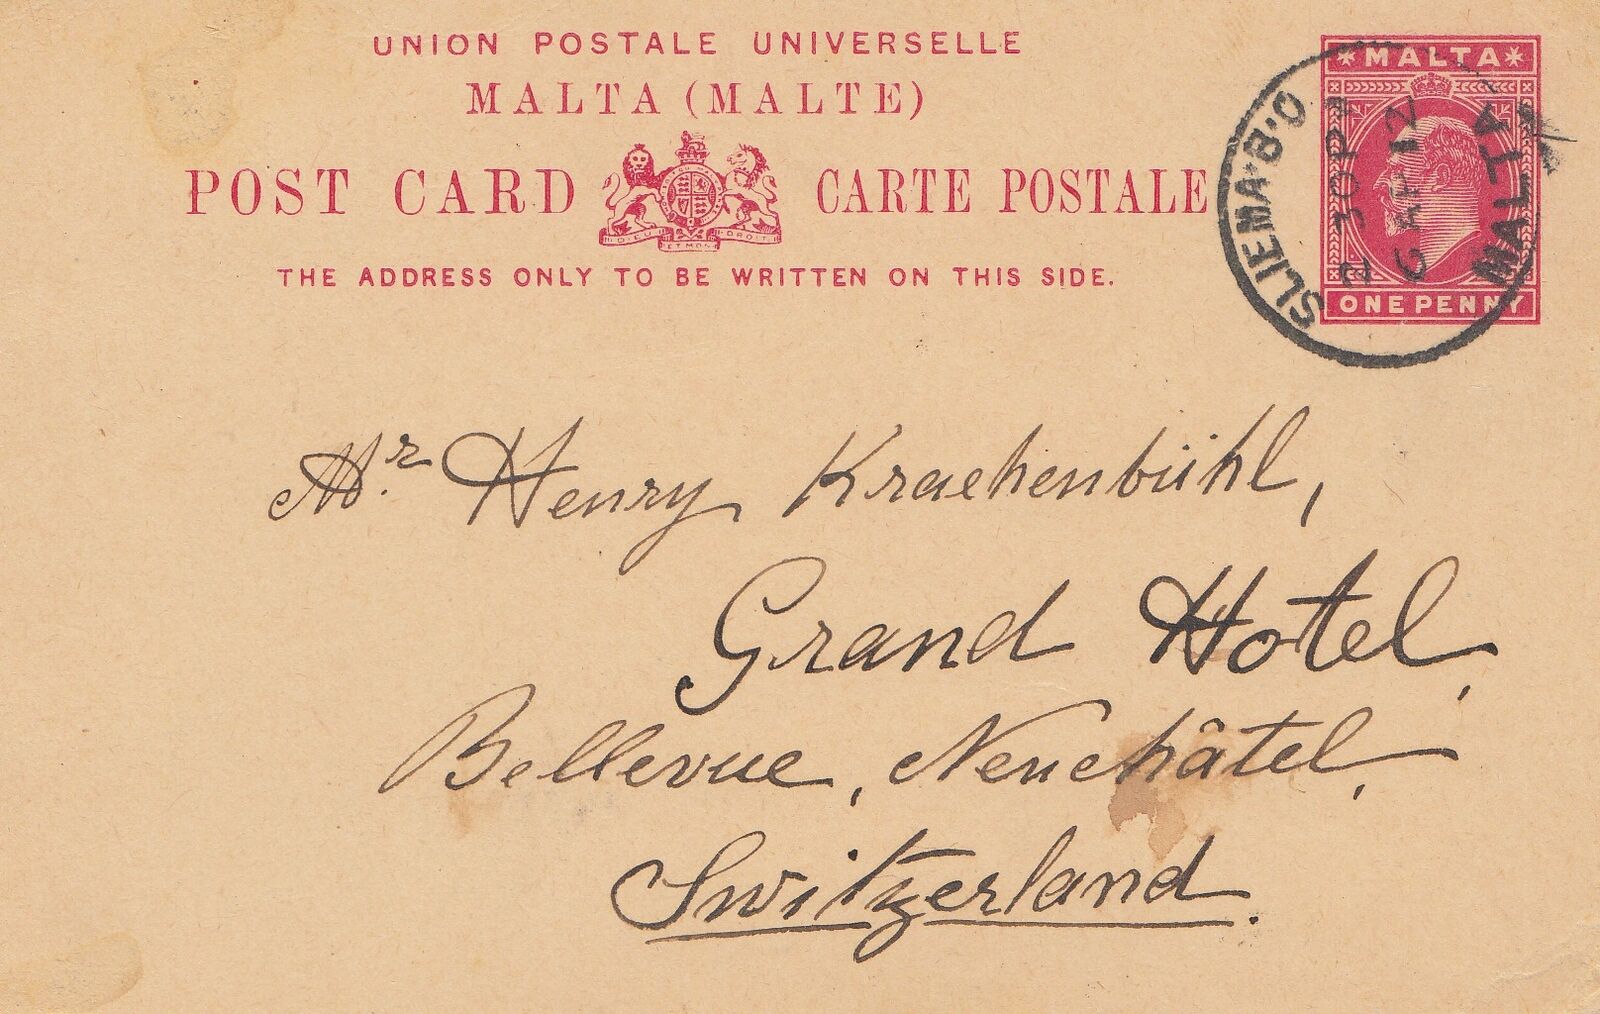 UNION POSTALE UNIVERSELLE
MALTA (MALTE)
POST CARD
CARTE POSTALE
DIEU ET MON DROIT
THE ADDRESS ONLY TO BE WRITTEN ON THIS SIDE.
MALTA
ONE PENNY
SLIEMA·B·O.
30PM
6 AP 12
MALTA
Mr. Henry Kraehenbühl,
Grand Hotel,
Bellevue, Neuchâtel,
Switzerland.